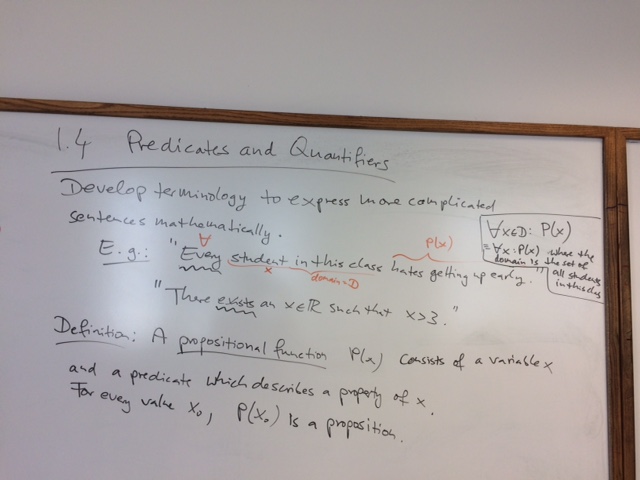 1.4 Predicates and Quantifiers
Develop terminology to express more complicated
sentences mathematically.
∀
P(x)
E.g.: "Every student in this class hates getting up early."
x
domain=D
∀x∈D: P(x)
=∀x: P(x) where the
domain is the set of
all students
in this class
"There exists an x∈ℝ such that x>3."
Definition: A propositional function P(x) consists of a variable x
and a predicate which describes a property of x.
For every value x₀, P(x₀) is a proposition.